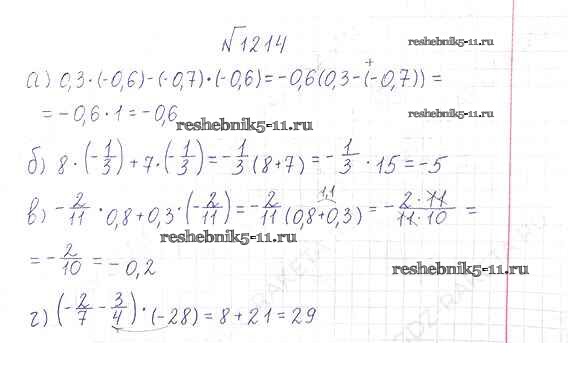 №1214
reshebnik5-11.ru
а) 0,3·(-0,6)-(-0,7)·(-0,6)=-0,6(0,3-(-0,7))=
+
=-0,6·1=-0,6
reshebnik5-11.ru
б) 8·(-1/3)+7·(-1/3)=-1/3(8+7)=-1/3·15=-5
1,1
в) -2/11·0,8+0,3·(-2/11)=-2/11(0,8+0,3)=-2·11/11·10=
reshebnik5-11.ru
=-2/10=-0,2
reshebnik5-11.ru
г) (-2/7-3/4)·(-28)=8+21=29